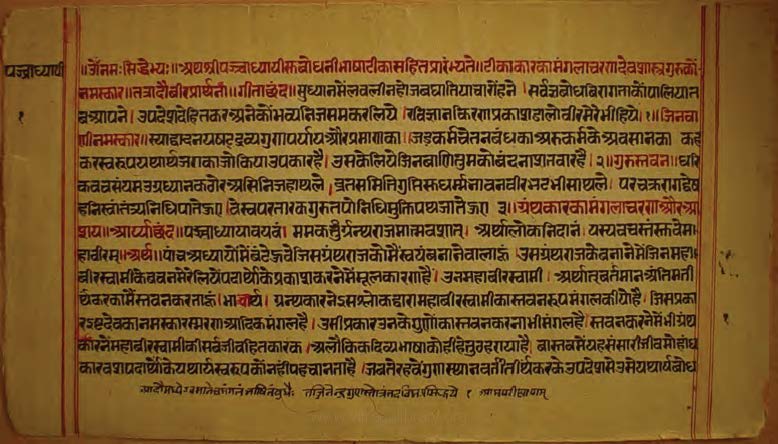 पञ्चाध्यायी
१
॥ॐनमःसिद्धेभ्यः॥अथश्रीपञ्चाध्यायीसुबोधनीभाषाटीकासहितप्रारंभ्यते॥टीकाकारकामंगलाचरणदेवशास्त्रगुरुकों
नमस्कार॥तत्रादौवीरप्रार्थना॥गीताछंद॥सुध्यानमेंलवलीनहोजबघातियाचारोंहने। सर्वज्ञबोधविरागताकोंपालियात
बआपने। उपदेशदेहितकरअनेकोंभव्यनिजसमकरलिये। रविज्ञानकिरणप्रकाशडालोवीरमेरेभीहिये।१।जिनवा
णीनमस्कार॥स्याद्वादनयषट्द्रव्यगुणपर्यायऔरप्रमाणका। जडकर्मचेतनबंधकाअरुकर्मकेअवसानका कह
करस्वरूपयथार्थजगकाजोकियाउपकारहै। उसकेलियेजिनबाणितुमकोवंदनाशतवारहै।२॥गुरुस्तवन॥धरि
कवचसंयमउग्रध्यानकठोरअसिनिजहाथले। व्रतसमितिगुप्तिसुधर्मभावनवीरभटभीसाथले। परचक्ररागद्वेष
हनिस्वातंत्र्यनिधिपातेहुए। वेस्वपरतारकगुरुतपोनिधिमुक्तिपथजातेहुए ३॥ग्रंथकारकामंगलाचरणऔरआ
शय॥आर्य्याछंद॥पञ्चाध्यायावयवं। ममकर्तुर्ग्रन्थराजमात्मवशात्। अर्थालोकनिदानं। यस्यवचस्तंस्तुवेम
हावीरम्॥अर्थ॥पांचअध्यायोंमेंबंटेहुवेजिसग्रंथराजकोमैंस्वयंबनानेवालाहूं। उसग्रंथराजकेबनानेमेंजिनमहा
वीरस्वामीकेवचनमेरेलियेपदार्थोंकेप्रकाशकरनेमेंमूलकारणहैं। उनमहावीरस्वामी। अर्थात्वर्तमानअंतिमती
र्थंकरकामैंस्तवनकरताहूं। भावार्थ। ग्रन्थकारनेइसश्लोकद्वारामहावीरस्वामीकास्तवनरूपमंगलकीयाहै। जिसप्रका
रइष्टदेवकानमस्कारस्मरणआदिकमंगलहै। उसीप्रकारउनकेगुणोंकास्तवनकरनाभीमंगलहै। स्तवनकरनेमेंभीग्रंथ
कारनेंमहावीरस्वामीकीसर्वजीवहितकारक। अलौकिकदिव्यभाषाकोहीहेतुठहरायाहै। वास्तवमेंयहसंसारीजीवमोहांध
कारवशपदार्थोंकेयथार्थस्वरूपकोंनहींपहचानताहै। जबतेरहवेंगुणस्थानवर्तीतीर्थंकरकेउपदेशसेउसेयथार्थबोध
१
आदौमध्येऽवसानेचमंगलंभाषितंबुधैः तज्जिनेन्द्रगुणस्तोत्रंतदविघ्नप्रसिद्धये १